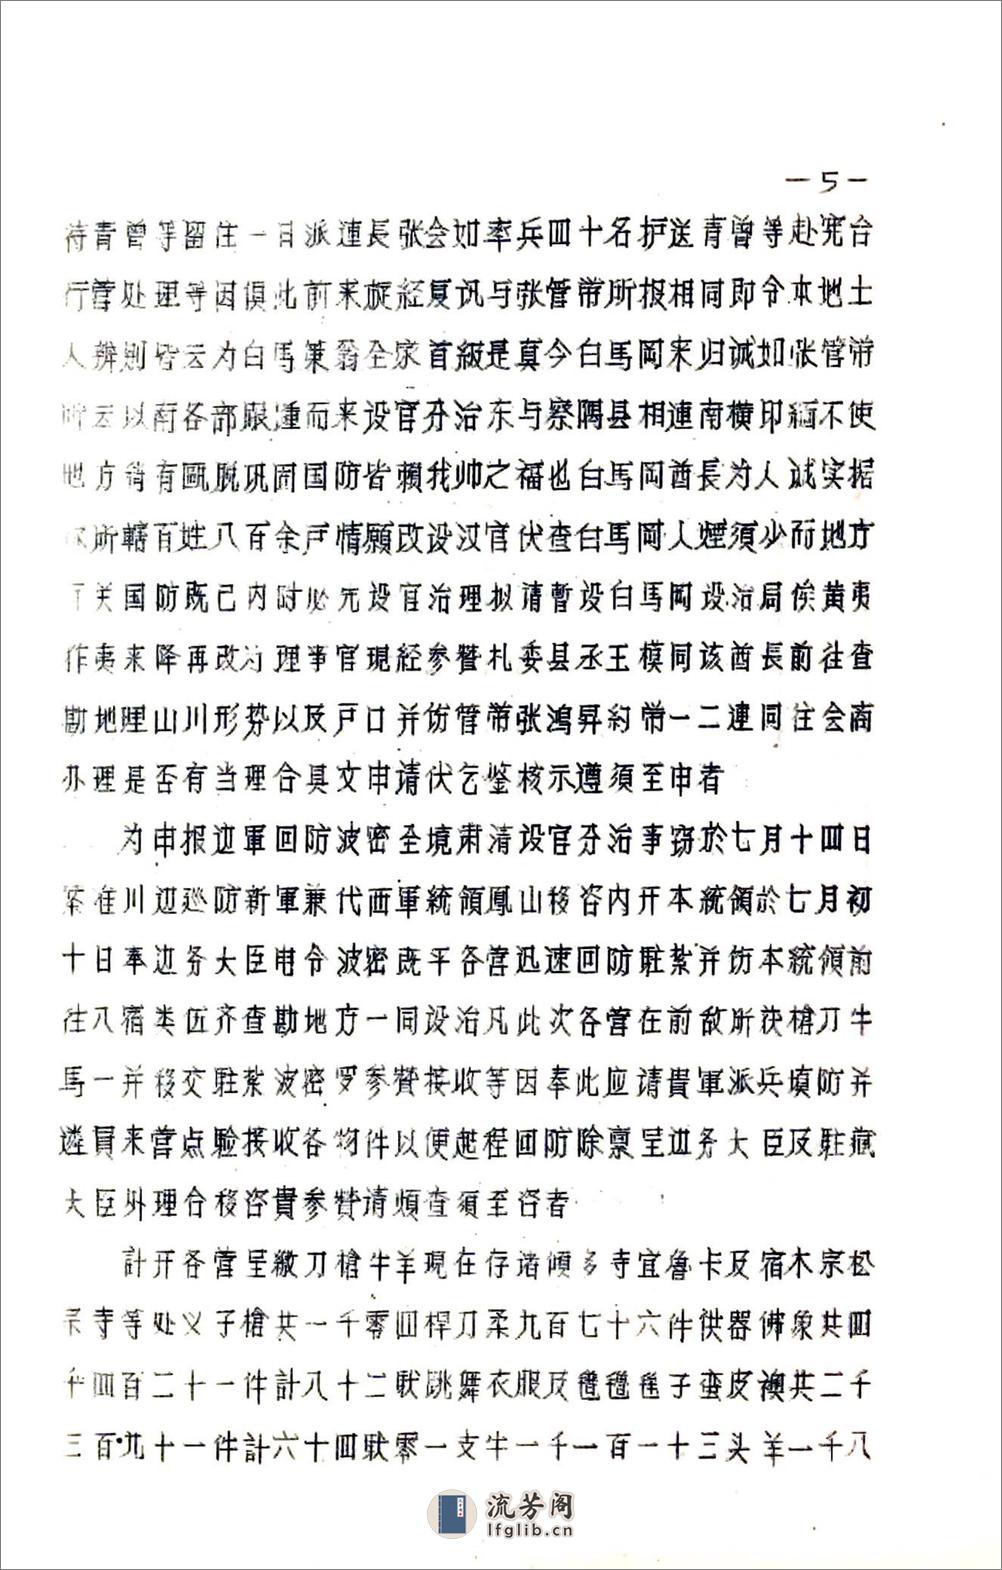 —5—
待青曾等留住一日派連長张会如率兵四十名护送青曾等赴宪台
行营处理等因俱此前来旋経夏讯与张管带所报相同即令本地土
人辨則皆云为白馬策翁全家首級是真今白馬岡来归诚如张管带
所云以南各部跟踵而来设官分治东与察隅县相連南横印緬不使
地方稍有甌脱巩固国防皆賴我帅之福也白馬岡酋長为人诚实据
所轄百姓八百余戸情願改设汉官伏查白馬岡人煙须少而地方
关国防既已内附必先设官治理拟请暫设白馬岡设治局俟黄夷
作夷来降再改为理事官現経参贊札委县丞王模同该酋長前往查
勘地理山川形势以及戸口并饬管带张鴻昇約带一二連同往会商
办理是否有当理合具文申请伏乞鉴核示遵须至申者
为申报边軍回防波密全境肃清设官分治事窃於七月十四日
案准川边巡防新軍兼代西軍統領鳳山移咨内开本統領於七月初
十日奉边务大臣电令波密既平各营迅速回防駐紮并饬本統領前
往八宿类伍齐查勘地方一同设治凡此次各营在前敌所获槍刀牛
馬一并移交駐紮波密罗参贊接收等因奉此应请貴軍派兵填防并
遴員来营点验接收各物件以便趑程回防除禀呈边务大臣及駐藏
大臣外理合移咨貴参贊请煩查须至咨者
計开各营呈繳刀槍牛羊現在存诸傾多寺宜魯卡及宿木宗松
宗寺等处义子槍共一千零四桿刀柔九百七十六件供器佛象共四
千四百二十一件計八十二馱跳舞衣服及氆氌毪子蛮皮襖共二千
三百九十一件計六十四馱零一支牛一千一百一十三头羊一千八
流芳阁
lfglib.cn